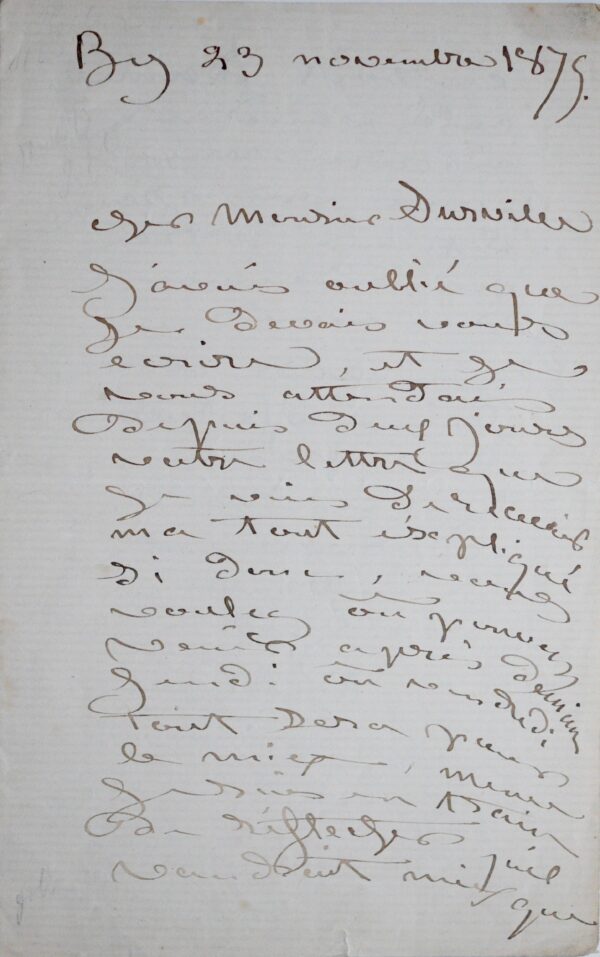 By 23 novembre 1875.
cher Monsieur Durville
j'avais oublié que
je devais vous
écrire, et je
vous attendais
depuis deux jours
votre lettre que
je viens de recevoir
ma tout éxpliqué
si donc, vous
voulez ou pouvez
venir après demain
jeudi ou vendredi
tout sera pour
le mieux, même
je suis en train
de réfléchir qu'il
vaudrait mieux que